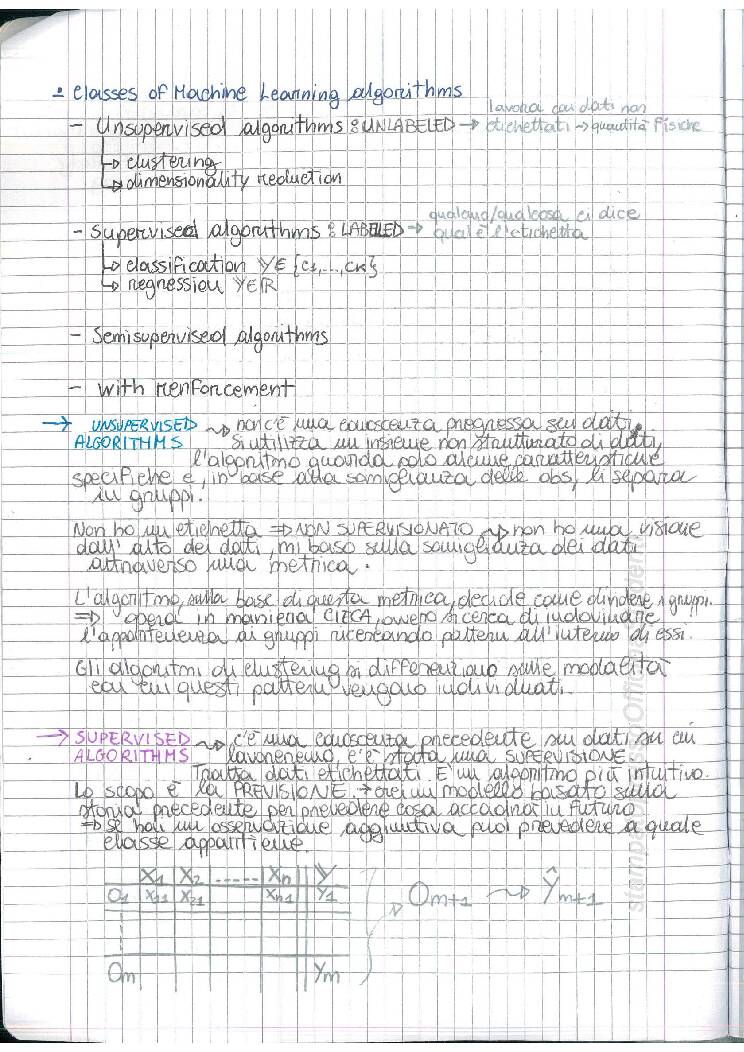 : Classes of Machine Learning algorithms
- Unsupervised algorithms : UNLABELED → lavora con dati non etichettati → quantità fisiche
↳ clustering
↳ dimensionality reduction
- Supervised algorithms : LABELED → qualcuno/qualcosa ci dice qual è l'etichetta
↳ classification Y∈{C1,...,CK}
↳ regression Y∈R
- Semisupervised algorithms
- with renforcement
→ UNSUPERVISED ALGORITHMS ⇝ non c'è una conoscenza pregressa sui dati.
Si utilizza un insieme non strutturato di dati,
l'algoritmo guarda solo alcune caratteristiche
specifiche e, in base alla somiglianza delle obs, li separa
in gruppi.
Non ho un etichetta ⇒ NON SUPERVISIONATO ⇝ non ho una visione
dall'alto dei dati, mi baso sulla somiglianza dei dati
attraverso una metrica.
L'algoritmo, sulla base di questa metrica, decide come dividere i gruppi.
⇒ opera in maniera CIECA, ovvero si cerca di indovinare
l'appartenenza ai gruppi ricercando pattern all'interno di essi.
Gli algoritmi di clustering si differenziano sulle modalità
con cui questi pattern vengono individuati.
→ SUPERVISED ALGORITHMS ⇝ c'è una conoscenza precedente sui dati su cui
lavoreremo, c'è stata una SUPERVISIONE.
Tratta dati etichettati. E' un algoritmo più intuitivo.
Lo scopo è la PREVISIONE → crei un modello basato sulla
storia precedente per prevedere cosa accadrà in futuro
⇒ se hai un osservazione aggiuntiva puoi prevedere a quale
classe appartiene.
X1 X2 ----- Xn Y
O1 X11 X21 Xn1 Y1
Om+1 ⇝ Ŷm+1
Om Ym